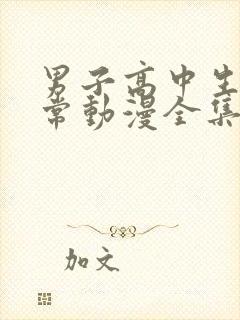 男子高中生
常動漫全集
加文